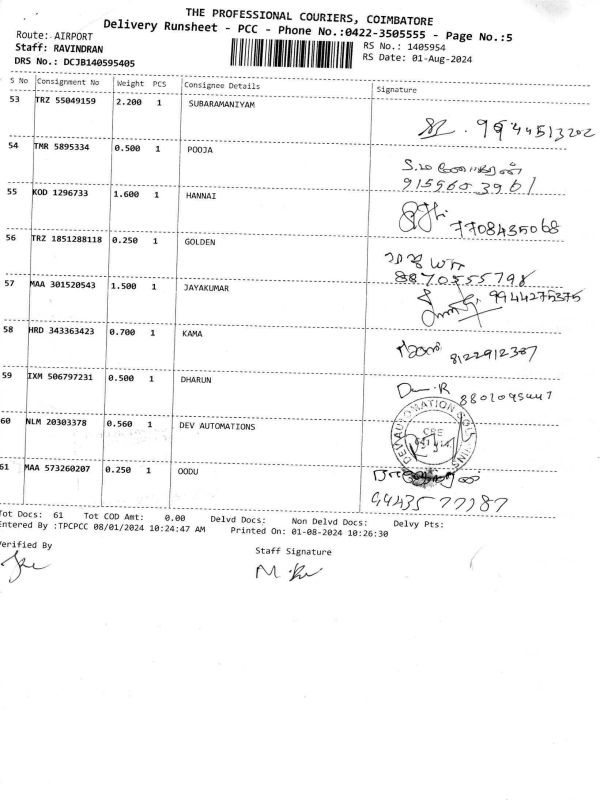 THE PROFESSIONAL COURIERS, COIMBATORE
Delivery Runsheet - PCC - Phone No.:0422-3505555 - Page No.:5
Route: AIRPORT
RS No.: 1405954
Staff: RAVINDRAN
RS Date: 01-Aug-2024
DRS No.: DCJB140595405
S No Consignment No Weight PCS Consignee Details Signature
53 TRZ 55049159 2.200 1 SUBARAMANIYAM
9944513202
54 TMR 5895334 0.500 1 POOJA
9155603961
55 KOD 1296733 1.600 1 HANNAI
7708435068
56 TRZ 1851288118 0.250 1 GOLDEN
8870555798
57 MAA 301520543 1.500 1 JAYAKUMAR
9944275375
58 HRD 343363423 0.700 1 KAMA
8122912387
59 IXM 506797231 0.500 1 DHARUN
60 NLM 20303378 0.560 1 DEV AUTOMATIONS
DEV AUTOMATION
CBE
61 MAA 573260207 0.250 1 OODU
9443577787
Tot Docs: 61 Tot COD Amt: 0.00 Delvd Docs: Non Delvd Docs: Delvy Pts:
Entered By :TPCPCC 08/01/2024 10:24:47 AM Printed On: 01-08-2024 10:26:30
Verified By
Staff Signature